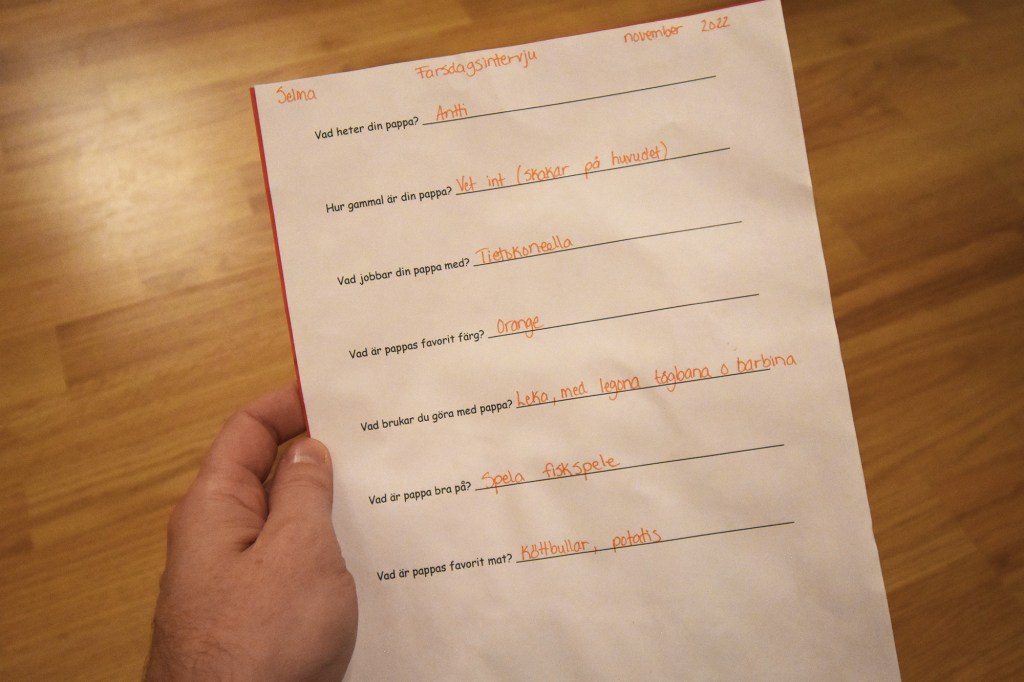 Selma Farsdagsintervju november 2022
Vad heter din pappa? Antti
Hur gammal är din pappa? Vet int (skakar på huvudet)
Vad jobbar din pappa med? Tietokoneella
Vad är pappas favorit färg? Orange
Vad brukar du göra med pappa? Leka, med legona tågbana o barbina
Vad är pappa bra på? Spela fiskspele
Vad är pappas favorit mat? Köttbullar, potatis